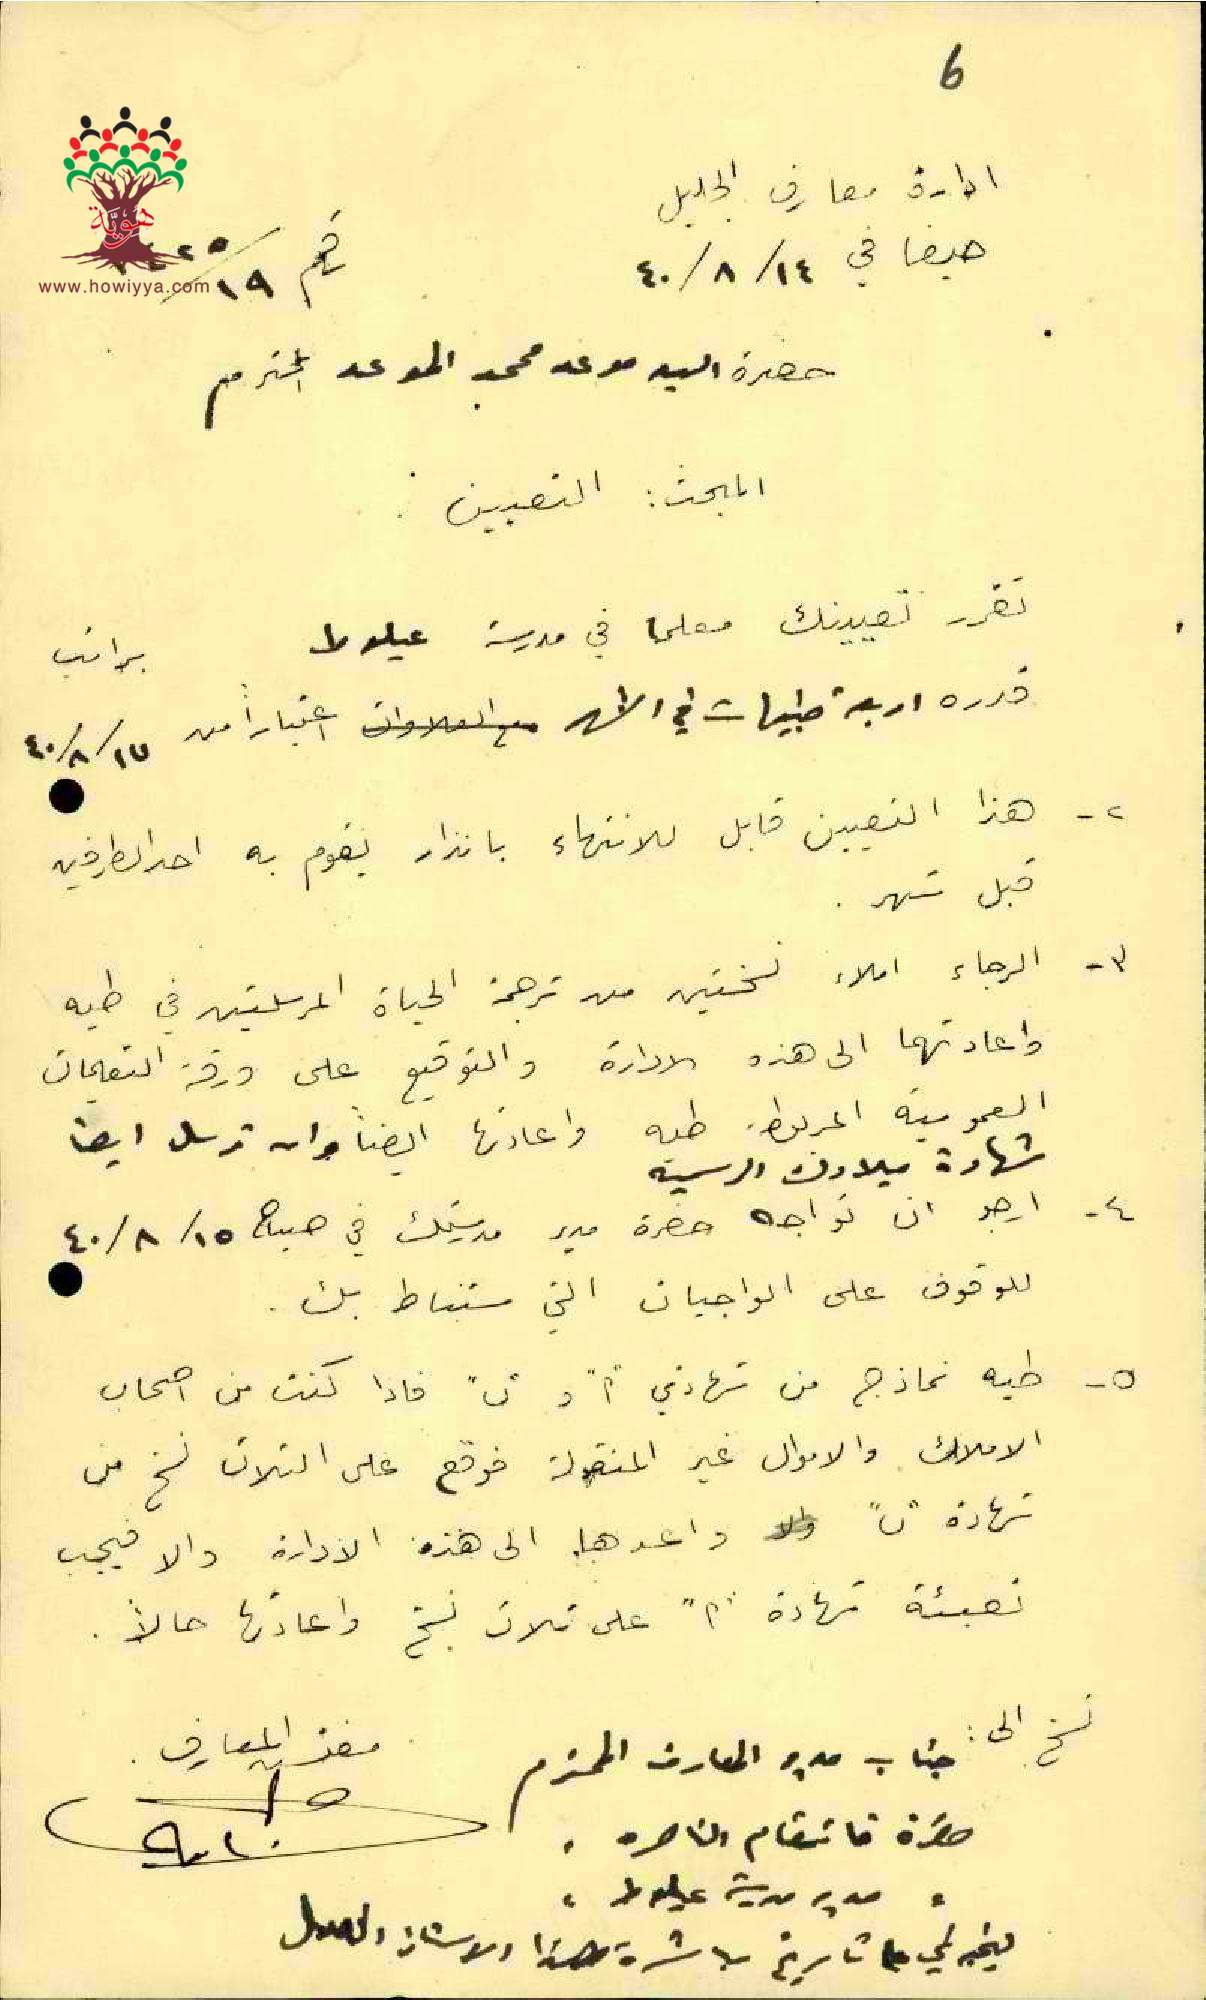 6
ادارة معارف الجليل
هويّة
www.howiyya.com
حيفا في ١٤/٨/٤٠
رقم ١٩/
حضرة السيد موعد محمد الموعد المحترم
المبحث: التعيين
تقرر تعيينك معلما في مدرسة عيلوط براتب
قدره اربعة جنيهات في الشهر مع العلاوات اعتباراً من ١٥/٨/٤٠
٢- هذا التعيين قابل للانتهاء بانذار يقوم به احد الطرفين
قبل شهر .
٣- الرجاء املاء نسختين من ترجمة الحياة المرسلتين في طيه
واعادتهما الى هذه الادارة والتوقيع على ورقة التعليمات
العمومية المربوطة طيه واعادتها ايضاً وان ترسل ايضا
شهادة ميلادك الرسمية
٤- ارجو ان تواجه حضرة مدير مدرستك في صباح ١٥/٨/٤٠
للوقوف على الواجبات التي ستناط بك .
٥- طيه نماذج من شهادتي "أ" و "ب" فاذا كنت من اصحاب
الاملاك والاموال غير المنقولة فوقع على الثلاث نسخ من
شهادة "ب" واعدها الى هذه الادارة والا فيجب
تعبئة شهادة "أ" على ثلاث نسخ واعادتها حالاً .
نسخ الى: جناب مدير المعارف المحترم
مفتش المعارف .
حضرة قائمقام الناصره "
" مدير مدرسة عيلوط "
تاريخ مباشرة هذا الاستاذ العمل